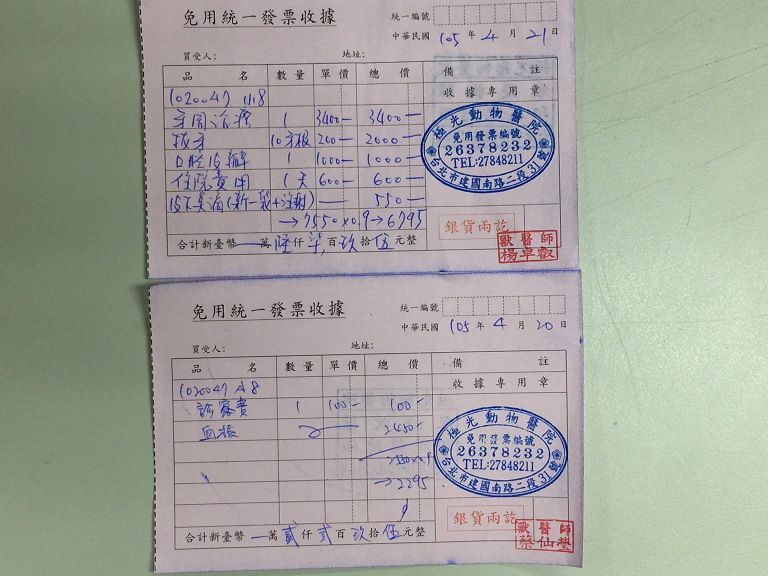 免用統一發票收據
統一編號
中華民國 105 年 4 月 21 日
買受人： 地址：
品 名 數量 單價 總 價 備 註
收據專用章
1020047 小8
牙周治療 1 3400— 3400—
拔牙 10牙根 200— 2000—
口腔皮瓣 1 1000— 1000—
住院費用 1天 600— 600—
皮下臭滴(新一袋+注射) — 550—
→7550×0.9→6795
極光動物醫院
免用發票編號
26378232
TEL:27848211
台北市建國南路二段31號
銀貨兩訖
獸醫師
楊卓叡
合計新臺幣 — 萬 陸 仟 柒 百 玖 拾 伍 元整
免用統一發票收據
統一編號
中華民國 105 年 4 月 20 日
買受人： 地址：
品 名 數量 單價 總 價 備 註
收據專用章
1020047 小8
診察費 1 100— 100—
血檢 2450—
2550×0.9
→2295
極光動物醫院
免用發票編號
26378232
TEL:27848211
台北市建國南路二段31號
銀貨兩訖
獸醫師
蔡仙瑩
合計新臺幣 — 萬 貳 仟 貳 百 玖 拾 伍 元整